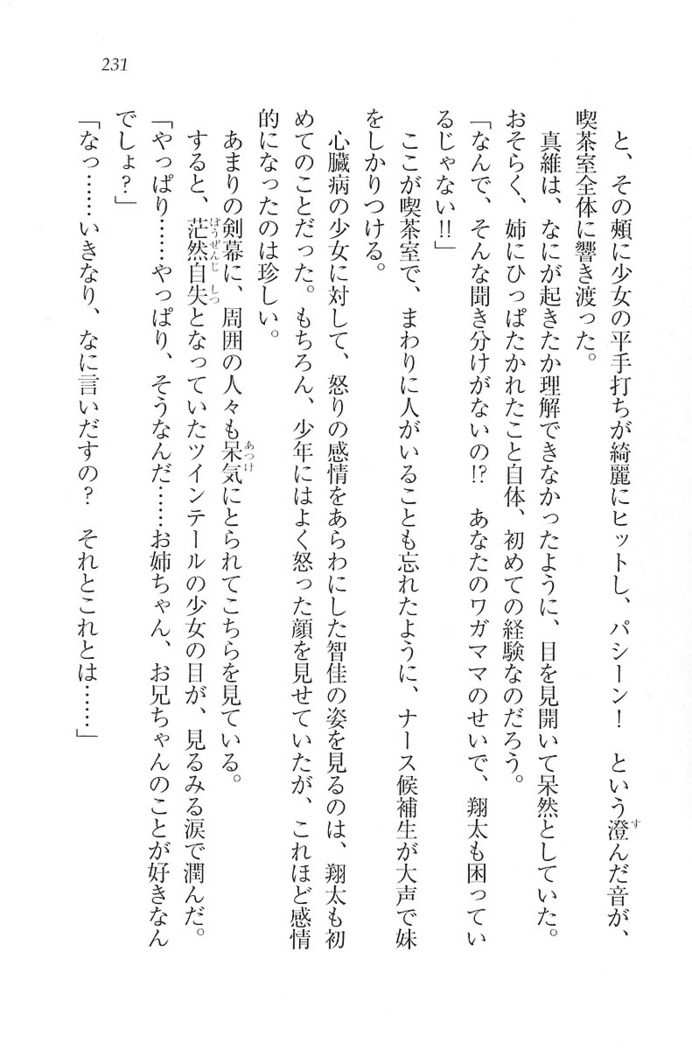 231
と、その頰に少女の平手打ちが綺麗にヒットし、パシーン！　という澄んだ音が、
喫茶室全体に響き渡った。
真維は、なにが起きたか理解できなかったように、目を見開いて呆然としていた。
おそらく、姉にひっぱたかれたこと自体、初めての経験なのだろう。
「なんで、そんな聞き分けがないの!?　あなたのワガママのせいで、翔太も困ってい
るじゃない!!」
ここが喫茶室で、まわりに人がいることも忘れたように、ナース候補生が大声で妹
をしかりつける。
心臓病の少女に対して、怒りの感情をあらわにした智佳の姿を見るのは、翔太も初
めてのことだった。もちろん、少年にはよく怒った顔を見せていたが、これほど感情
的になったのは珍しい。
あまりの剣幕に、周囲の人々も呆気にとられてこちらを見ている。
すると、茫然自失となっていたツインテールの少女の目が、見るみる涙で潤んだ。
「やっぱり……やっぱり、そうなんだ……お姉ちゃん、お兄ちゃんのことが好きなん
でしょ？」
「なっ……いきなり、なに言いだすの？　それとこれとは……」